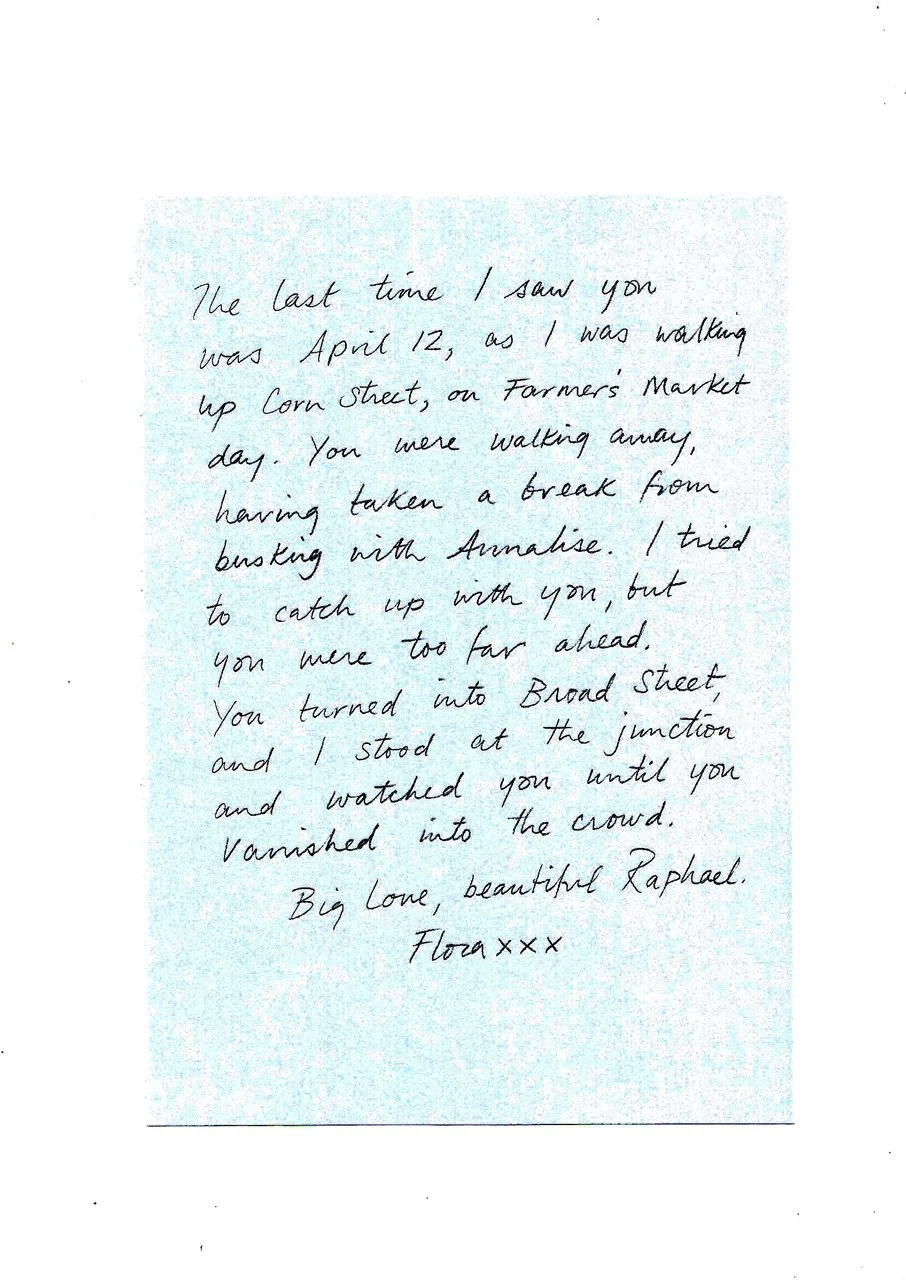 The last time I saw you
was April 12, as I was walking
up Corn Street, on Farmer's Market
day. You were walking away,
having taken a break from
busking with Annalise. I tried
to catch up with you, but
you were too far ahead.
You turned into Broad Street,
and I stood at the junction
and watched you until you
vanished into the crowd.
Big Love, beautiful Raphael.
Flora xxx